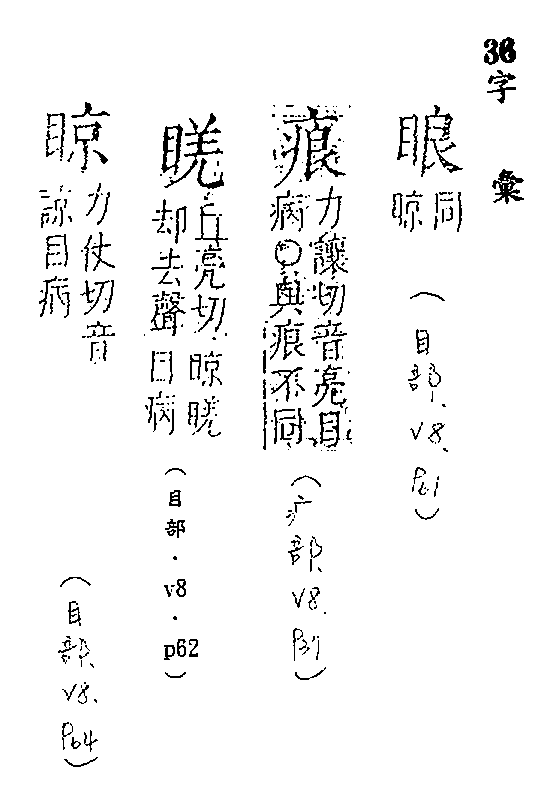 36
字彙
䀶
同
䁁
(目部、v8、P61)
㾗
力讓切音亮目
病○與痕不同
(疒部、v8、P37)
丘亮切·
却去聲目病
(目部·v8·p62)
䁁
力仗切音
諒目病
(目部、v8、P64)